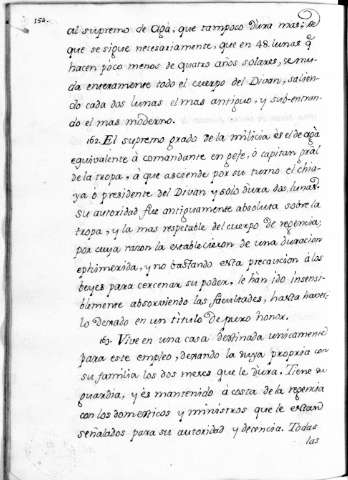 152.
al supremo de Agà, que tampoco dura mas; de
que se sigue necesariamente, que en 48. lunas q̃
hacen poco menos de quatro años solares, se mu-
da enteramente todo el cuerpo del Divan, salien-
do cada dos lunas el mas antiguo, y sub-entran-
do el mas moderno.
162. El supremo grado de la milicia es el de agà
equivalente à comandante en gefe, ò capitan gral
de la tropa, à que asciende por su turno el chia-
ya ò presidente del Divan y solo dura dos lunas.
su autoridad fue antiguamente absoluta sobre la
tropa, y la mas respetable del cuerpo de regencia;
por cuya razon la establecieron de una duracion
ephimerida, y no bastando esta precaucion à los
beyes para cercenar su poder, le han ido insensi-
blemente absorviendo las facultades, hasta haver-
lo dexado en un titulo de puro honor.
163. Vive en una casa destinada unicamente
para este empleo, dexando la suya propria con
su familia los dos meres que le dura. Tiene su
guardia, y es mantenido à costa de la regencia
con los domesticos y ministros que le estan
señalados para su autoridad y decencia. Todas
las